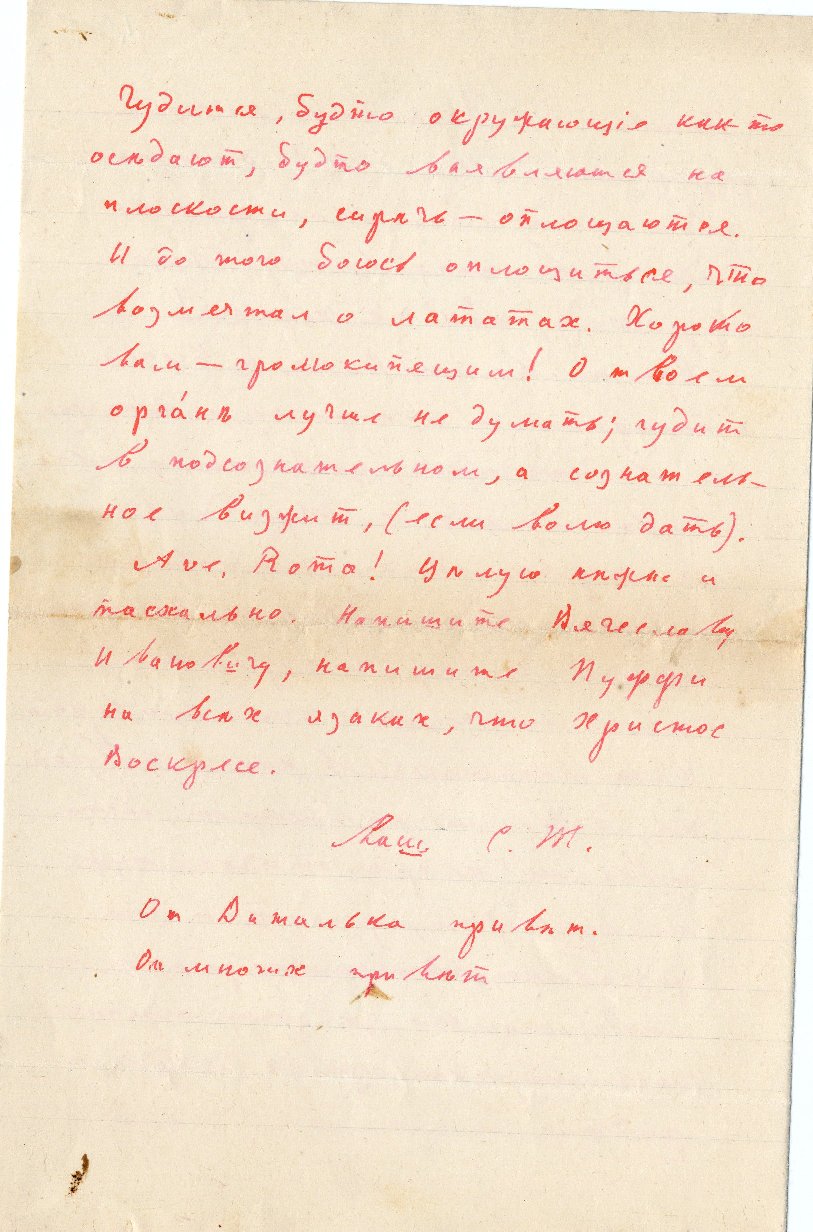 Чудится, будто окружающіе как то
осѣдают, будто выявляются на
плоскости, сирѣчь — оплощаются.
И до того боюсь оплощиться, что
возмечтал о лататах. Хорошо
вам — громокипящим! О твоем
орга́нѣ лучше не думать; чудит
в подсознательном, а сознатель-
ное визжит, (если волю дать).
Ave, Roma! Цѣлую нѣжно и
пасхально. Напишите Вячеславу
Ивановичу, напишите Пуффи
на всѣх языках, что Христос
Воскресе.
Ваш С. Т.
От Виталька привѣт.
От многих привѣт